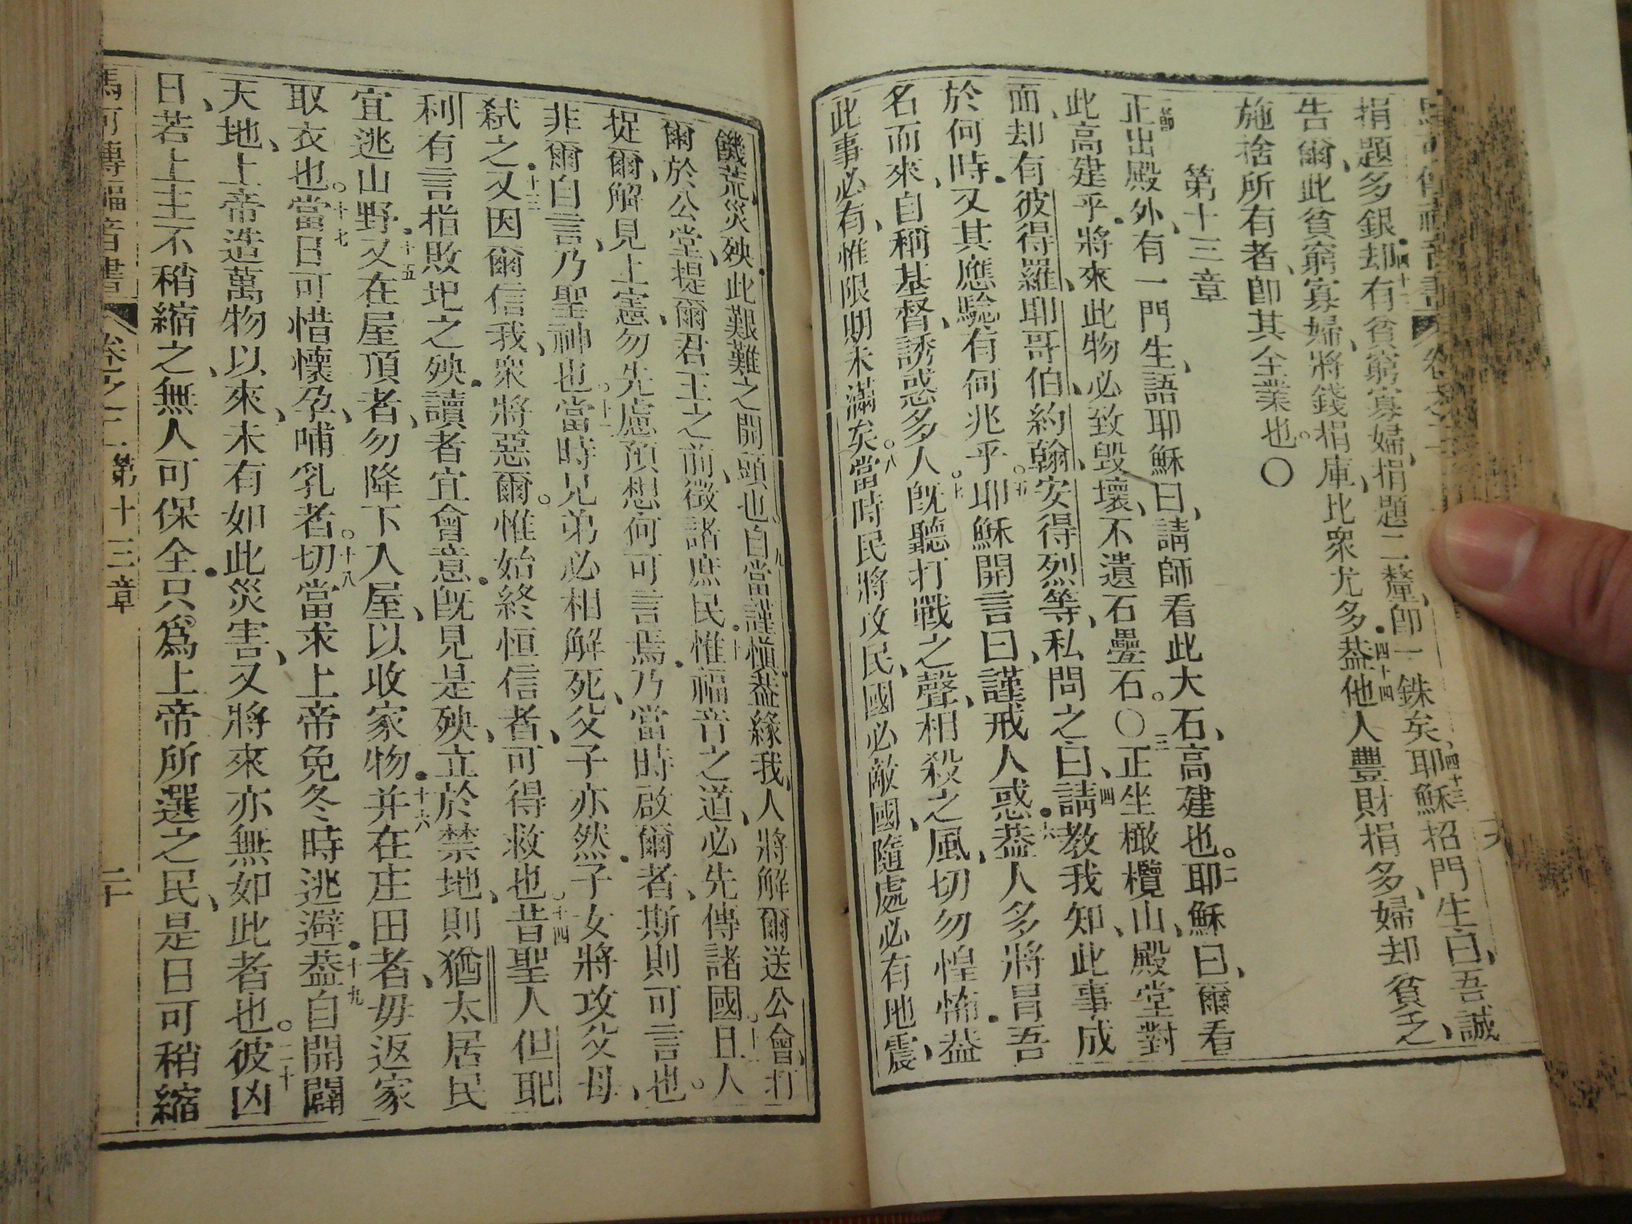 捐題多銀、却有貧窮寡婦、捐題二釐、卽一銖矣、耶穌招門生曰、吾誠
告爾、此貧窮寡婦、將錢捐庫、比衆尤多、葢他人豐財捐多、婦却貧乏、
施捨所有者、卽其全業也。〇
第十三章
正出殿外、有一門生、語耶穌曰、請師看此大石、高建也。二耶穌曰、爾看
此高建乎、將來此物必致毀壞、不遺石疊石。〇三正坐橄欖山、殿堂對
面、却有彼得羅、耶哥伯、約翰、安得烈等、私問之曰、四請教我知、此事成
於何時、又其應驗有何兆乎。五耶穌開言曰、謹戒人惑、六葢人多將冒吾
名而來、自稱基督、誘惑多人。七旣聽打戰之聲、相殺之風、切勿惶怖、葢
此事必有、惟限期未滿矣。八當時民將攻民、國必敵國、隨處必有地震、
饑荒災殃、此艱難之開頭也。九自當謹愼、葢緣我、人將解爾送公會、打
爾於公堂、提爾君王之前、徵諸庶民、十惟福音之道、必先傳諸國。十一且人
捉爾、解見上憲、勿先慮預想何可言焉、乃當時啟爾者、斯則可言也。
非爾自言、乃聖神也。十二當時兄弟必相解死、父子亦然、子女將攻父母、
弒之、十三又因爾信我、衆將惡爾。惟始終恒信者、可得救也。十四昔聖人但耶
利有言、指敗圯之殃、讀者宜會意、旣見是殃、立於禁地、則猶太居民
宜逃山野、十五又在屋頂者、勿降下入屋、以收家物、十六并在庄田者、毋返家
取衣也。十七當日可惜懷孕、哺乳者。十八切當求上帝免冬時逃避、十九葢自開闢
天地、上帝造萬物以來、未有如此災害、又將來亦無如此者也。二十彼凶
日、若上主不稍縮之、無人可保全、只爲上帝所選之民、是日可稍縮
馬可傳福音書 卷之二 第十三章 二十